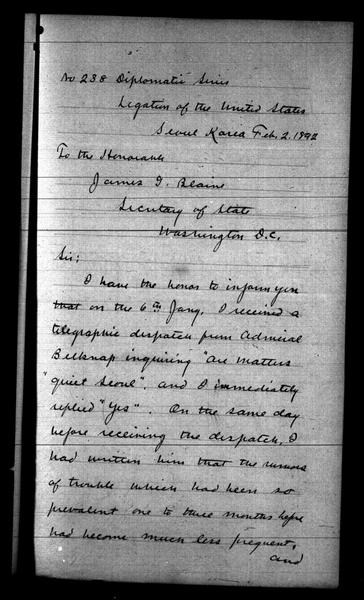 No 238 Diplomatic Series
Legation of the United States
Seoul Korea Feb. 2. 1892
To the Honorable
James G. Blaine
Secretary of State
Washington D.C.
Sir:
I have the honor to inform you
that on the 6th Jany. I received a
telegraphic despatch from Admiral
Belknap inquiring "are matters
"quiet Seoul". and I immediately
replied "Yes". On the same day
before receiving the despatch, I
had written him that the rumors
of trouble which had been so
prevalent one to three months before
had become much less frequent,
and